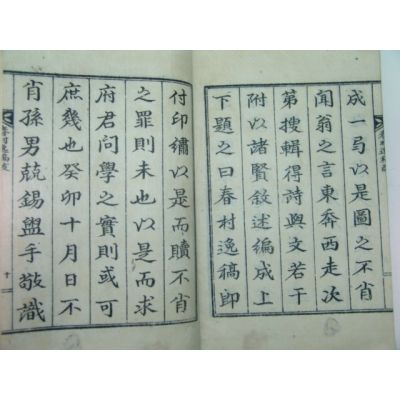 成一局以是圖之不肖
聞翁之言東奔西走次
第搜輯得詩與文若干
附以諸賢敘述編成上
下題之曰春村逸稿卽
付印繡以是而贖不肖
之罪則未也以是而求
府君問學之實則或可
庶幾也癸卯十月日不
肖孫男兢錫盥手敬識
十